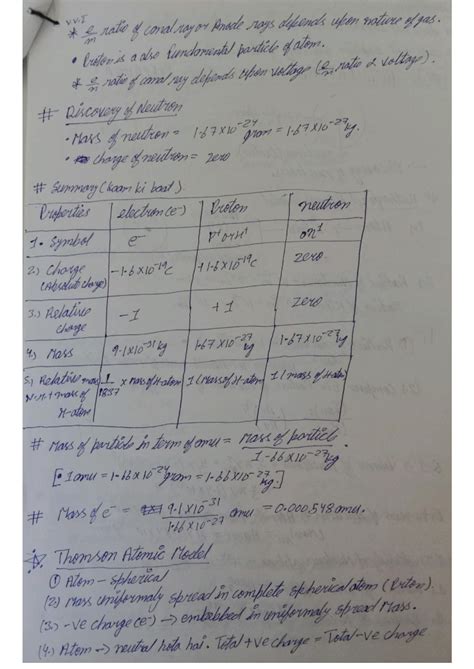 V.V.I
* e/m ratio of canal ray or Anode rays depends upon nature of gas.
• Proton is a also fundamental particle of atom.
* e/m ratio of canal ray depends upon voltage (e/m ratio α voltage).
# Discovery of Neutron
• Mass of neutron = 1.67×10⁻²⁴ gram = 1.67×10⁻²⁷ kg.
• charge of neutron = zero
# Summary (kaam ki baat).
Properties electron (e⁻) Proton neutron
1. Symbol e⁻ P⁺ or H⁺ on¹
2.) Charge (Absolute charge) -1.6×10⁻¹⁹C +1.6×10⁻¹⁹C zero
3.) Relative charge -1 +1 zero
4) Mass 9.1×10⁻³¹ kg 1.67×10⁻²⁷ kg 1.67×10⁻²⁷ kg
5.) Relative mass w.r.t mass of H-atom 1/1837 × Mass of H-atom 1 (Mass of H-atom) 1 (mass of H-atom)
# Mass of particle in term of amu = Mass of particle / 1.66×10⁻²⁷
[• 1 amu = 1.66×10⁻²⁴ gram = 1.66×10⁻²⁷ kg.]
# Mass of e⁻ = 9.1×10⁻³¹ / 1.66×10⁻²⁷ amu = 0.000548 amu.
Thomson Atomic Model
① Atom – spherical
(2) Mass uniformaly spread in complete spherical atom (Proton).
(3.) -ve charge (e⁻) → embedded in uniformaly spread Mass.
(4.) Atom → neutral hota hai. Total +ve charge = Total -ve charge